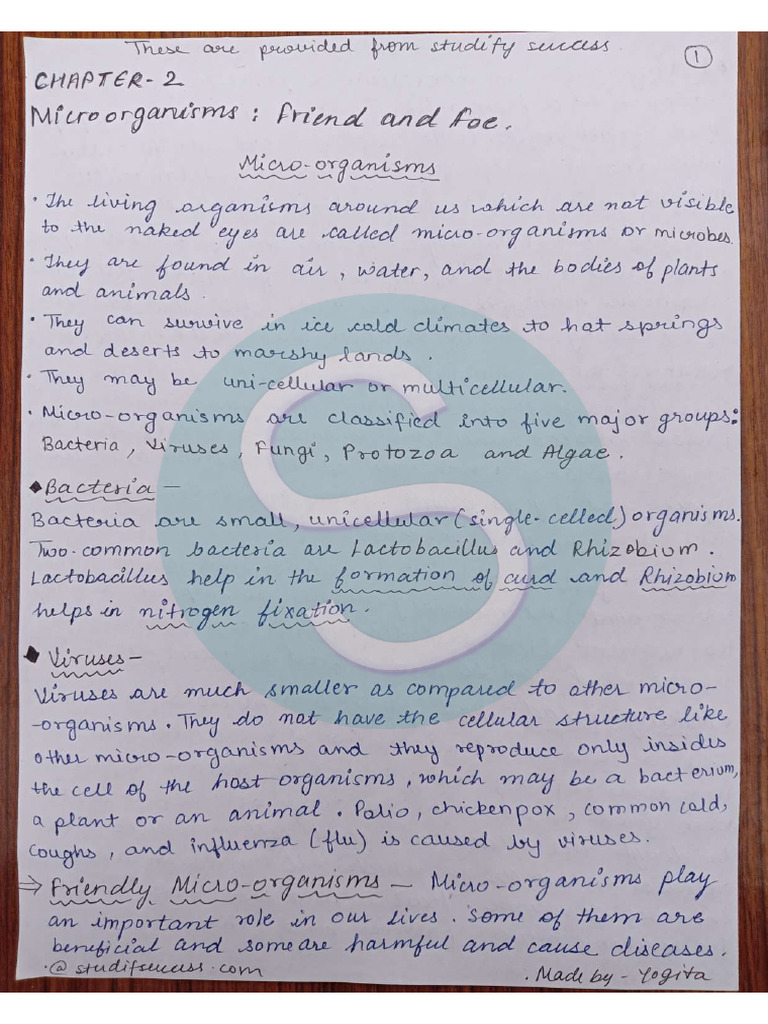 These are provided from studify success.
1
CHAPTER-2
Microorganisms : Friend and Foe.
Micro-organisms
· The living organisms around us which are not visible
to the naked eyes are called micro-organisms or microbes.
· They are found in air, water, and the bodies of plants
and animals.
· They can survive in ice cold climates to hot springs
and deserts to marshy lands.
· They may be uni-cellular or multicellular.
· Micro-organisms are classified into five major groups:
Bacteria, Viruses, Fungi, Protozoa and Algae.
◆Bacteria –
Bacteria are small, unicellular (single-celled) organisms.
Two-common bacteria are Lactobacillus and Rhizobium.
Lactobacillus help in the formation of curd and Rhizobium
helps in nitrogen fixation.
◆ Viruses–
Viruses are much smaller as compared to other micro-
-organisms. They do not have the cellular structure like
other micro-organisms and they reproduce only insides
the cell of the host organisms, which may be a bacterium,
a plant or an animal. Polio, chickenpox, common cold,
coughs, and influenza (flu) is caused by viruses.
⇒ Friendly Micro-organisms – Micro-organisms play
an important role in our lives. Some of them are
beneficial and some are harmful and cause diseases.
·@studifsuccess.com
. Made by - Yogita